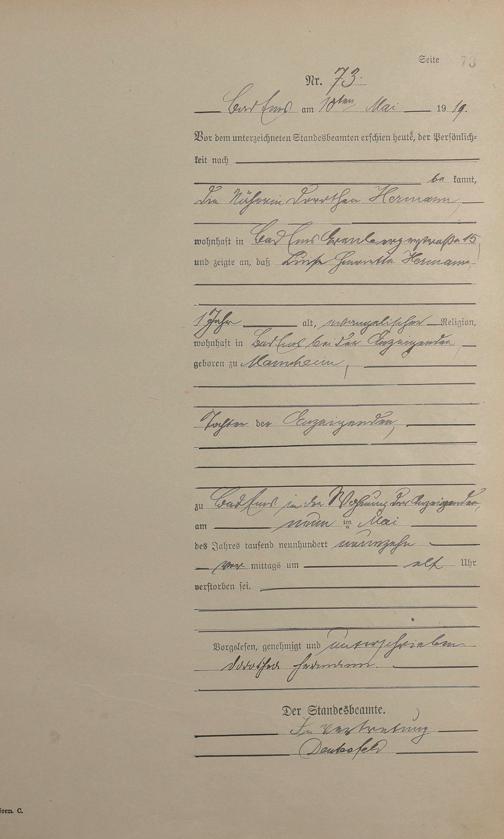 Seite 73
Nr. 73.
Bad Ems am 10ten Mai 1919.
Vor dem unterzeichneten Standesbeamten erschien heute, der Persönlich-
keit nach
be kannt,
die Näherin Dorothea Hermann,
wohnhaft in Bad Ems 15,
und zeigte an, daß Luise Henriette Hermann
1 Jahr alt, evangelischer Religion,
wohnhaft in Bad Ems bei der Anzeigenden,
geboren zu Mannheim,
Tochter der Anzeigenden,
zu Bad Ems in der Wohnung der Anzeigenden,
am neun im Mai
des Jahres tausend neunhundert neunzehn
vor mittags um elf Uhr
verstorben sei.
Vorgelesen, genehmigt und unterschrieben
Dorothea Hermann.
Der Standesbeamte.
In Vertretung
Form. C.